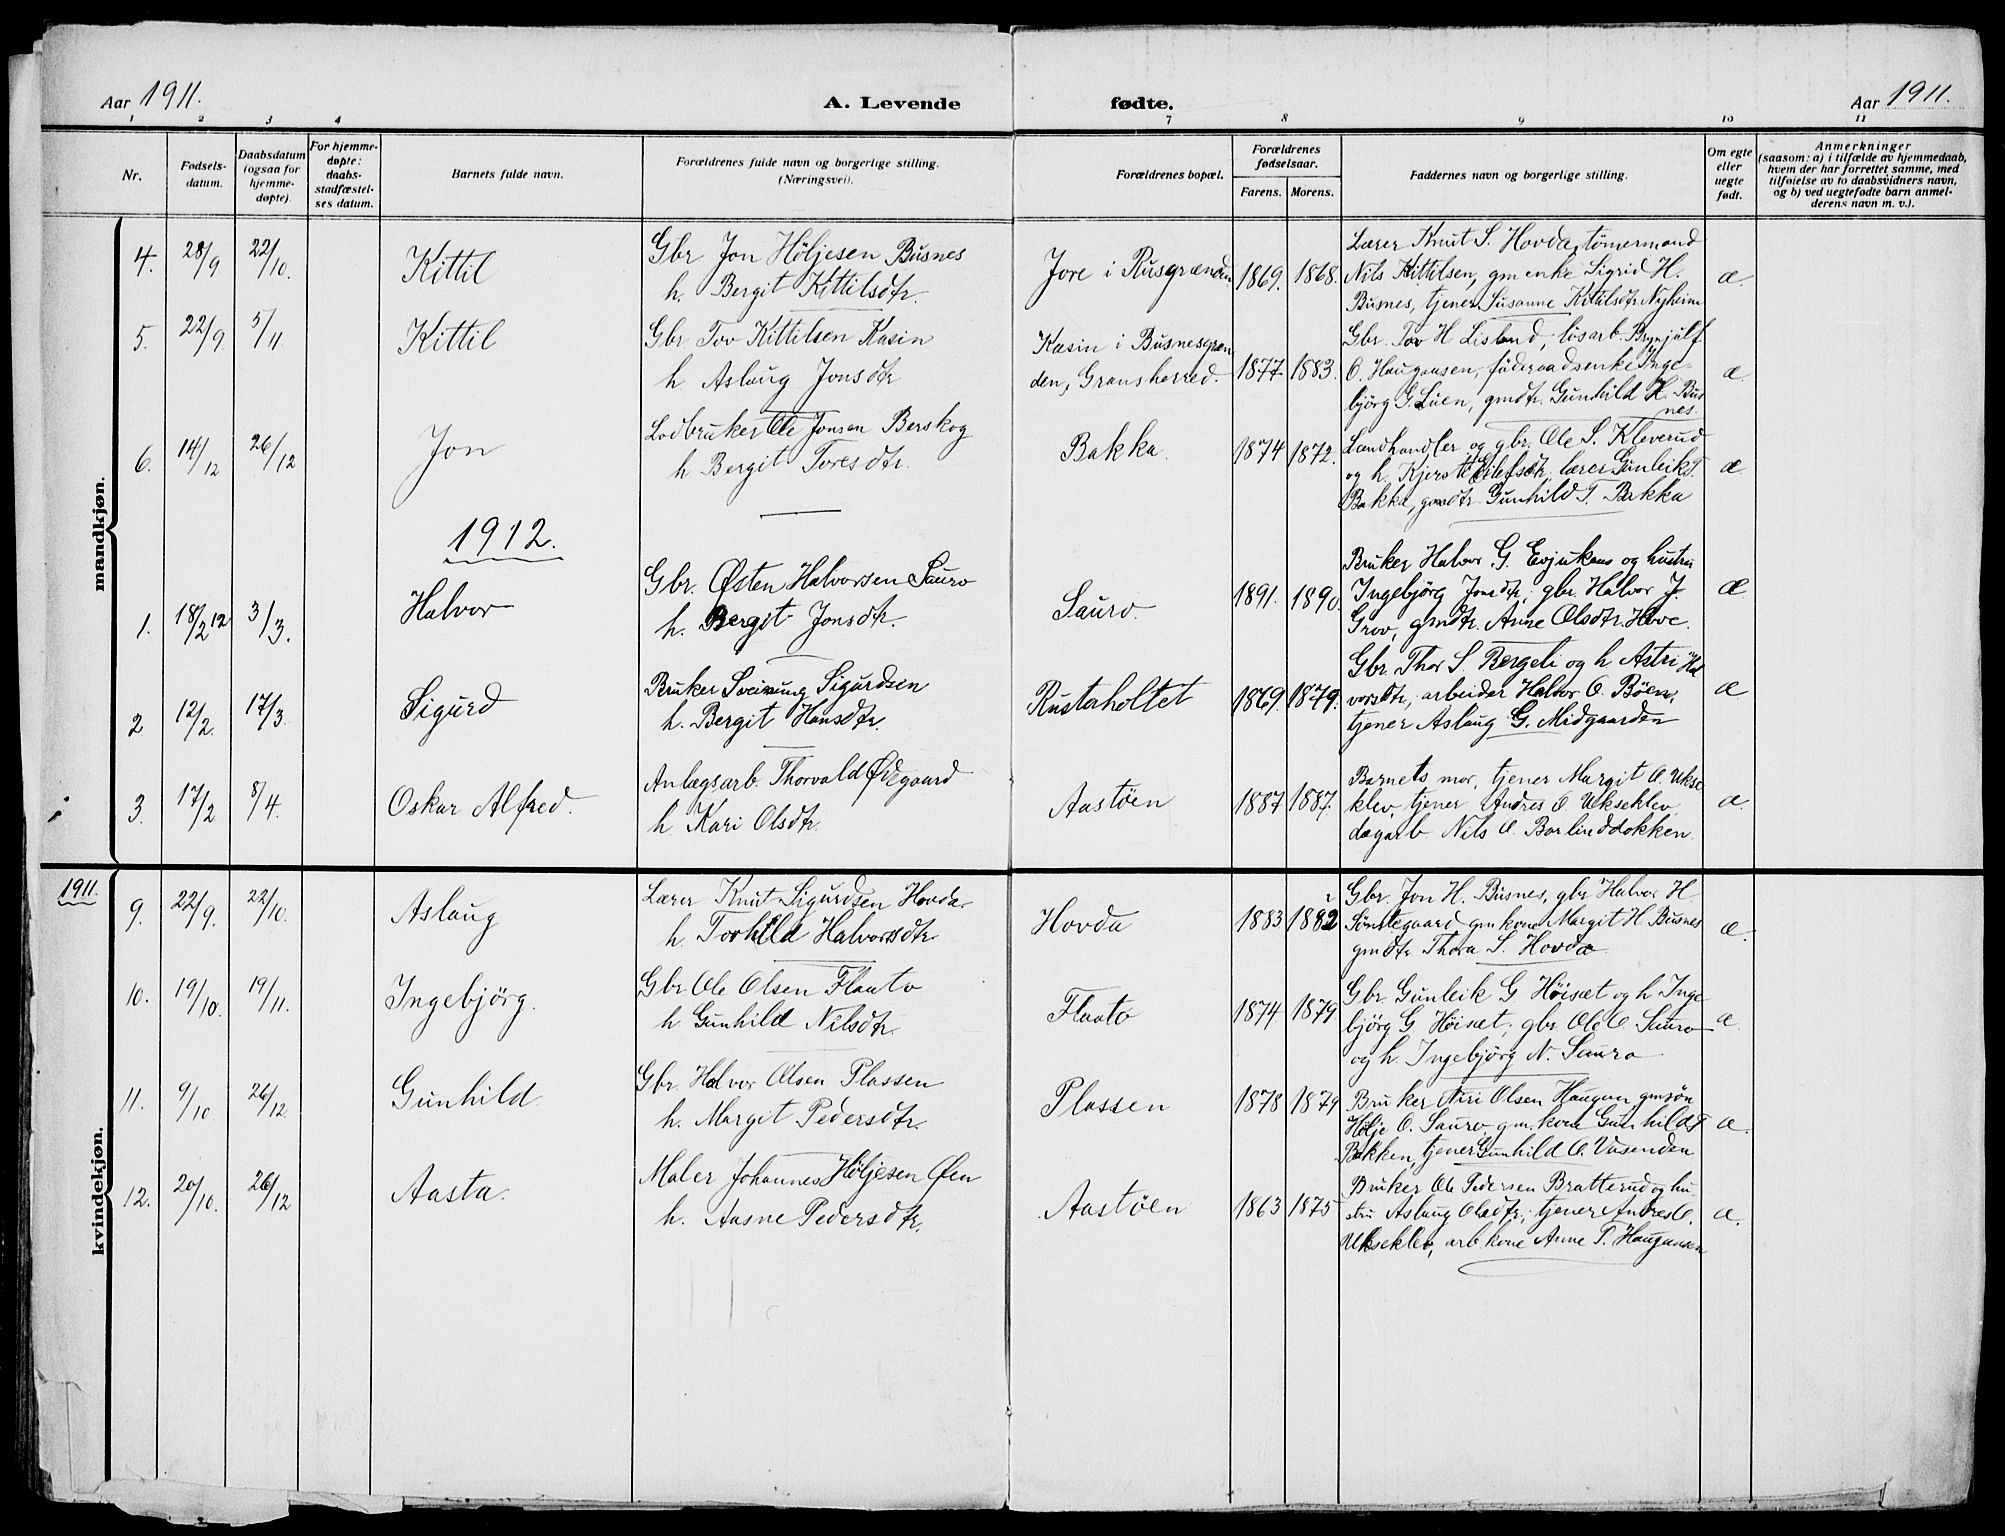 Aar 1911.
A. Levende fødte.
Aar 1911.
1 2 3 4 7 8 9 10 11
Nr.
Fødsels-
datum.
Daabsdatum
(ogsaa for
hjemme-
døpte).
For hjemme-
døpte:
daabs-
stadfæstel-
ses datum.
Barnets fulde navn.
Forældrenes fulde navn og borgerlige stilling.
(Næringsvei).
Forældrenes bopæl.
Forældrenes
fødselsaar.
Farens. Morens.
Faddernes navn og borgerlige stilling.
Om egte
eller
uegte
født.
Anmerkninger
(saasom: a) i tilfælde av hjemmedaab,
hvem der har forrettet samme, med
tilføielse av to daabsvidners navn,
og b) ved uegtefødte barn anmel-
derens navn m. v.).
mandkjøn.
4. 28/9 22/10. Kittil
Gbr Jon Höljesen Busnes
h. Bergit Kittilsdtr.
Jore i Rusgrænden 1869. 1868.
Lærer Knut S. Hovda, tömermand
Nils Kittilsen, gm enke Sigrid H.
Busnes, tjener Susanne Kittilsdtr Nyheim
æ.
5. 22/9 5/11. Kittil
Gbr Tov Kittilsen Kasin
h Aslaug Jonsdtr
Kasin i Busnesgræn
den, Gransherred. 1877. 1883.
Gbr. Tov H Lisland, lösarb. Brynjulf
O. Haugaasen, föderaadsenke Inge-
björg G. Luen, gmdtr. Gunhild H. Bus
nes.
æ.
6. 14/12 26/12 Jon
Lodbruker Ole Jonsen Berskog
h Bergit Toresdtr.
Bakka. 1874 1872.
Landhandler og gbr. Ole S. Kleverud
og h. Kjersti Eilefsdtr, lærer Gunleik T.
Bakka, gmdtr Gunhild T. Bakka
æ
1912.
1. 18/2 12 3/3. Halvor
Gbr. Østen Halvorsen Sauro
h. Bergit Jonsdtr.
Sauro. 1891. 1890.
Bruker Halvor G. Evjukaas og hustru
Ingebjörg Jonsdtr; gbr Halvor J.
Grov, gmdtr. Anne Olsdtr. Hove.
Æ
2 12/2. 17/3. Sigurd
Bruker Sveinung Sigurdsen
h. Bergit Hansdtr.
Rustaholtet 1869. 1879.
Gbr. Thor S. Bergeli og h Astri Hal
vorsdtr, arbeider Halvor O. Böen,
tjener Aslaug G. Midgaarden
æ
3. 17/2 8/4. Oskar Alfred.
Anlægsarb. Thorvald Ødegaard
h Kari Olsdtr.
Aastöen 1887 1887.
Barnets mor, tjener Margit O. Ukse
klev, tjener Andres O Ukseklev
dagarb Nils O. Borlinddokken.
æ.
1911.
kvindekjøn.
9. 22/9. 22/10. Aslaug
Lærer Knut Sigurdsen Hovda.
h. Torhild Halvorsdtr.
Hovda 1883 1882
2
Gbr. Jon H. Busnes, gbr Halvor H
Sönstegaard gm kone Margit H. Busnes
gmdtr. Thora S. Hovda
æ.
10. 19/10. 19/11. Ingebjörg.
Gbr Ole Olsen Flaato
h Gunhild Nilsdtr.
Flaato 1874 1879
Gbr. Gunleik G Höisæt og h Inge-
björg G Höisæt; gbr Ole O. Sauro
og h. Ingebjörg N. Sauro
æ.
11. 9/10. 26/12 Gunhild
Gbr. Halvor Olsen Plassen
h. Margit Pedersdtr.
Plassen 1878 1879
Bruker Niri Olsen Haugan gmsön
Hölje O. Sauro, gm. kone Gunhild T
Bakken, tjener Gunhild O. Vasenden
æ.
12. 20/10. 26/12 Aasta.
Maler Johannes Höljesen Øen
h. Aasne Pedersdtr.
Aastöen 1863 1875
Bruker Ole Pedersen Bratterud og hu-
stru Aslaug Olsdtr; tjener Andres O.
Ukseklev, arb. kone Anne T. Haugaasen
æ.